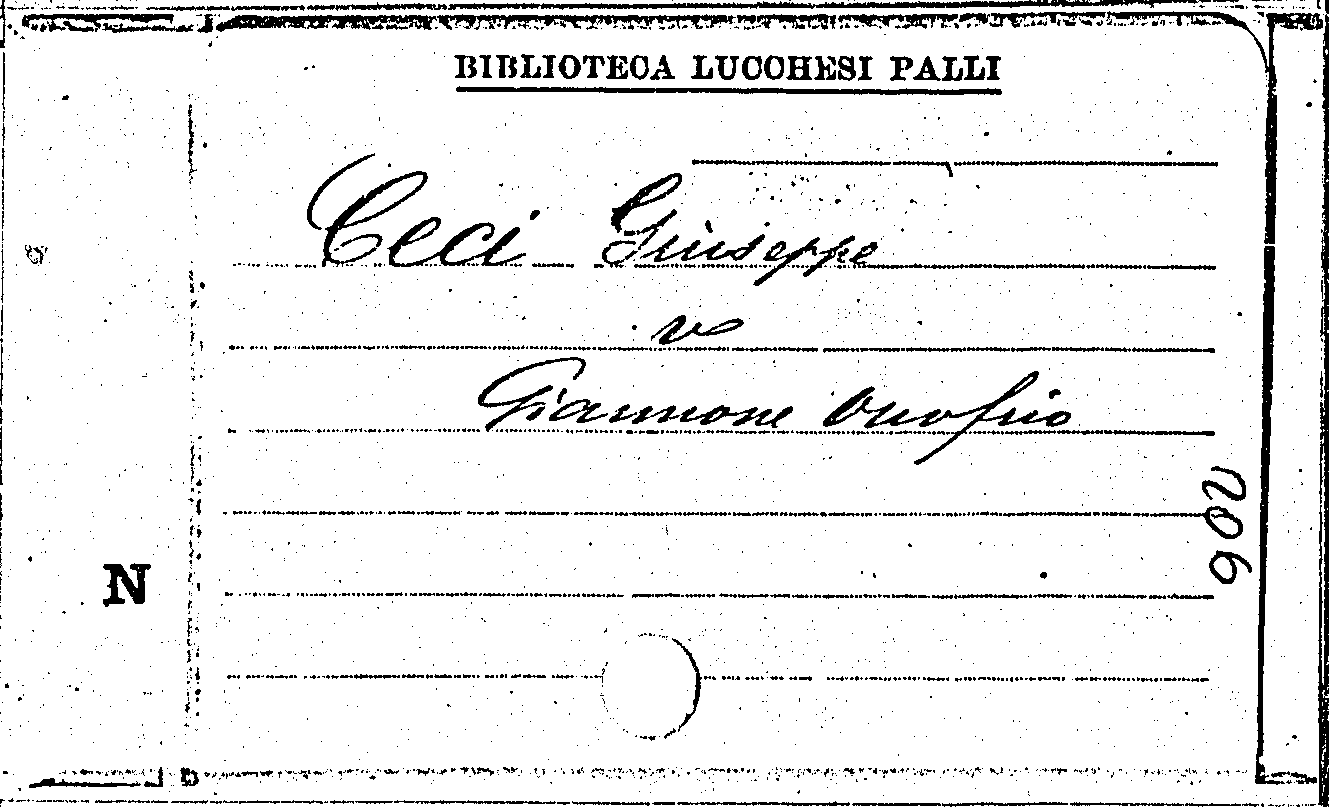 BIBLIOTECA LUCCHESI PALLI
Ceci Giuseppe
v
Giannone Onofrio
206
N